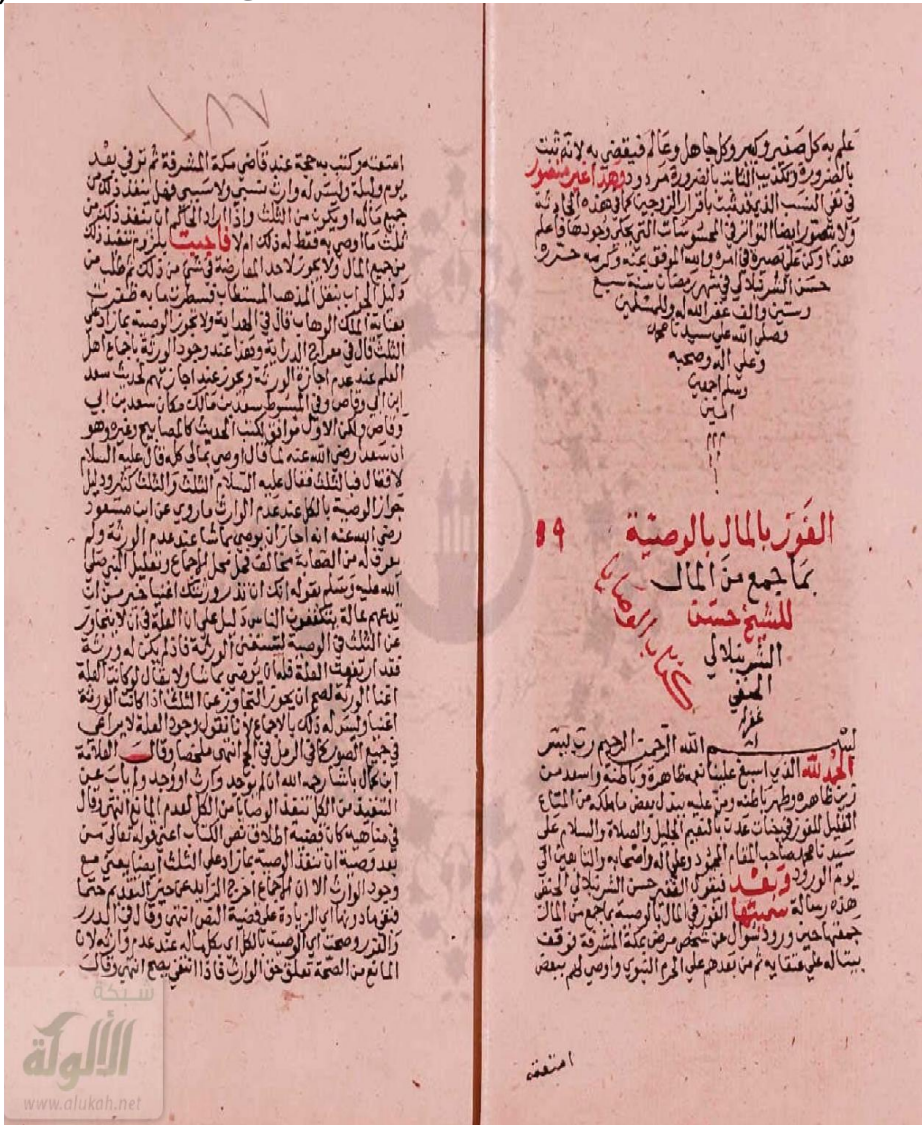 علم به كل صغير وكبير وكل جاهل وعالم فيقضي به لانه ثبت
بالضرورة وتكذيب الثابت بالضرورة مردود وهذا غير متصور
في نفي النسب الذي قد ثبت باقرار الزوجية كما في هذه الحادثة
ولا يتصور ايضا التواتر في المحسوسات التي يمكن وجودها فاعلم
هذا وكن على بصيرة في امره والله الموفق بمنه وكرمه حرره
حسن الشرنبلالي في شهر رمضان سنة سبع
وستين والف غفر الله له وللمسلمين
وصلى الله على سيدنا محمد
وعلى اله وصحبه
وسلم اجمعين
امين
الفوز بالمال بالوصية ٥٩
بما جمع من المال
للشيخ حسن
الشرنبلالي
الحنفي
غفر له
كتاب الوصايا
بسم الله الرحمن الرحيم رب يسر
الحمد لله الذي اسبغ علينا نعمه ظاهرة وباطنة واسعد من
زين ظاهره وطهر باطنه ومن عليه ببذل بعض ما ملكه من المتاع
القليل للفوز في جنات عدن بالنعيم الجليل والصلاة والسلام على
سيدنا محمد صاحب المقام المحمود وعلى اله واصحابه والتابعين الى
يوم الورود وبعد فيقول الفقير حسن الشرنبلالي الحنفي
هذه رسالة سميتها الفوز في المال بالوصية بما جمع من المال
جمعتها حين ورود سؤال عن شخص مرض بمكة المشرفة فوقف
بيتا له على عتقايه ثم من بعدهم على الحرم النبوي واوصى لهم ببعض
اعتقته
١٨٧
اعتقته وكتب به حجة عند قاضي مكة المشرفة ثم توفي بعد
يوم وليلة وليس له وارث نسبي ولا سببي فهل ينفذ ذلك من
جميع ماله او يكون من الثلث واذا اراد الحاكم ان ينفذ ذلك من
ثلث ما اوصى به فقط له ذلك ام لا فاجبت بلزوم تنفيذ ذلك
من جميع المال ولا يجوز لاحد المعارضة في شئ من ذلك ثم طلب من
دليل الجواب بنقل المذهب المستطاب فسطرت ما به ظفرت
بعناية الملك الوهاب قال في الهداية ولا تجوز الوصية بما زاد على
الثلث قال في معراج الدراية وهذا عند وجود الورثة باجماع اهل
العلم عند عدم اجازة الورثة ويجوز عند اجازتهم لحديث سعد
ابن ابي وقاص وفي المبسوط سعد بن مالك مكان سعد بن ابي
وقاص ولكن الاول موافق لكتب الحديث كالمصابيح وغيره وهو
ان سعد رضي الله عنه لما قال اوصي بمالي كله قال عليه السلام
لا فقال فبالثلث فقال عليه السلام الثلث والثلث كثير ودليل
جواز الوصية بالكل عند عدم الوارث ما روي عن ابن مسعود
رضي الله عنه انه اجاز ان يوصي بما شا عند عدم الورثة ولم
يعرف له من الصحابة مخالف فحل محل الاجماع وتعليل النبي صلى
الله عليه وسلم بقوله انك ان تذر ورثتك اغنيا خير من ان
تدعهم عالة يتكففون الناس دليل على ان العلة في ان لا يتجاوز
عن الثلث في الوصية لتستغني الورثة فاذا لم يكن له ورثة
فقد ارتفعت العلة فله ان يوصي بما شا ولا يقال لو كانت العلة
اغنا الورثة لصح ان يجوز التجاوز عن الثلث اذا كانت الورثة
اغنيا وليس له ذلك بالاجماع لانا نقول وجود العلة لا يراعى
في جميع الصور كما في الرمل في الحج انتهى ملخصا وقال العلامة
ابن كمال باشا رحمه الله ان لم يوجد وارث او وجد ولم ياب عن
التنفيذ من الكل تنفذ الوصايا من الكل لعدم المانع انتهى وقال
في مناهيه كان قضية اطلاق نص الكتاب اعني قوله تعالى من
بعد وصية ان تنفذ الوصية بما زاد على الثلث ايضا يعني مع
وجود الوارث الا ان الاجماع اخرج الزايد عما حيز التقديم حتما
فبقي ما دونها اي الزيادة على قضية النص انتهى وقال في الدرر
والغرر وصحت اي الوصية بالكل اي بكل ماله عند عدم وارثه لان
المانع من الصحة تعلق حق الوارث فاذا انتفى يصح انتهى وقال
شبكة
الألوكة
www.alukah.net